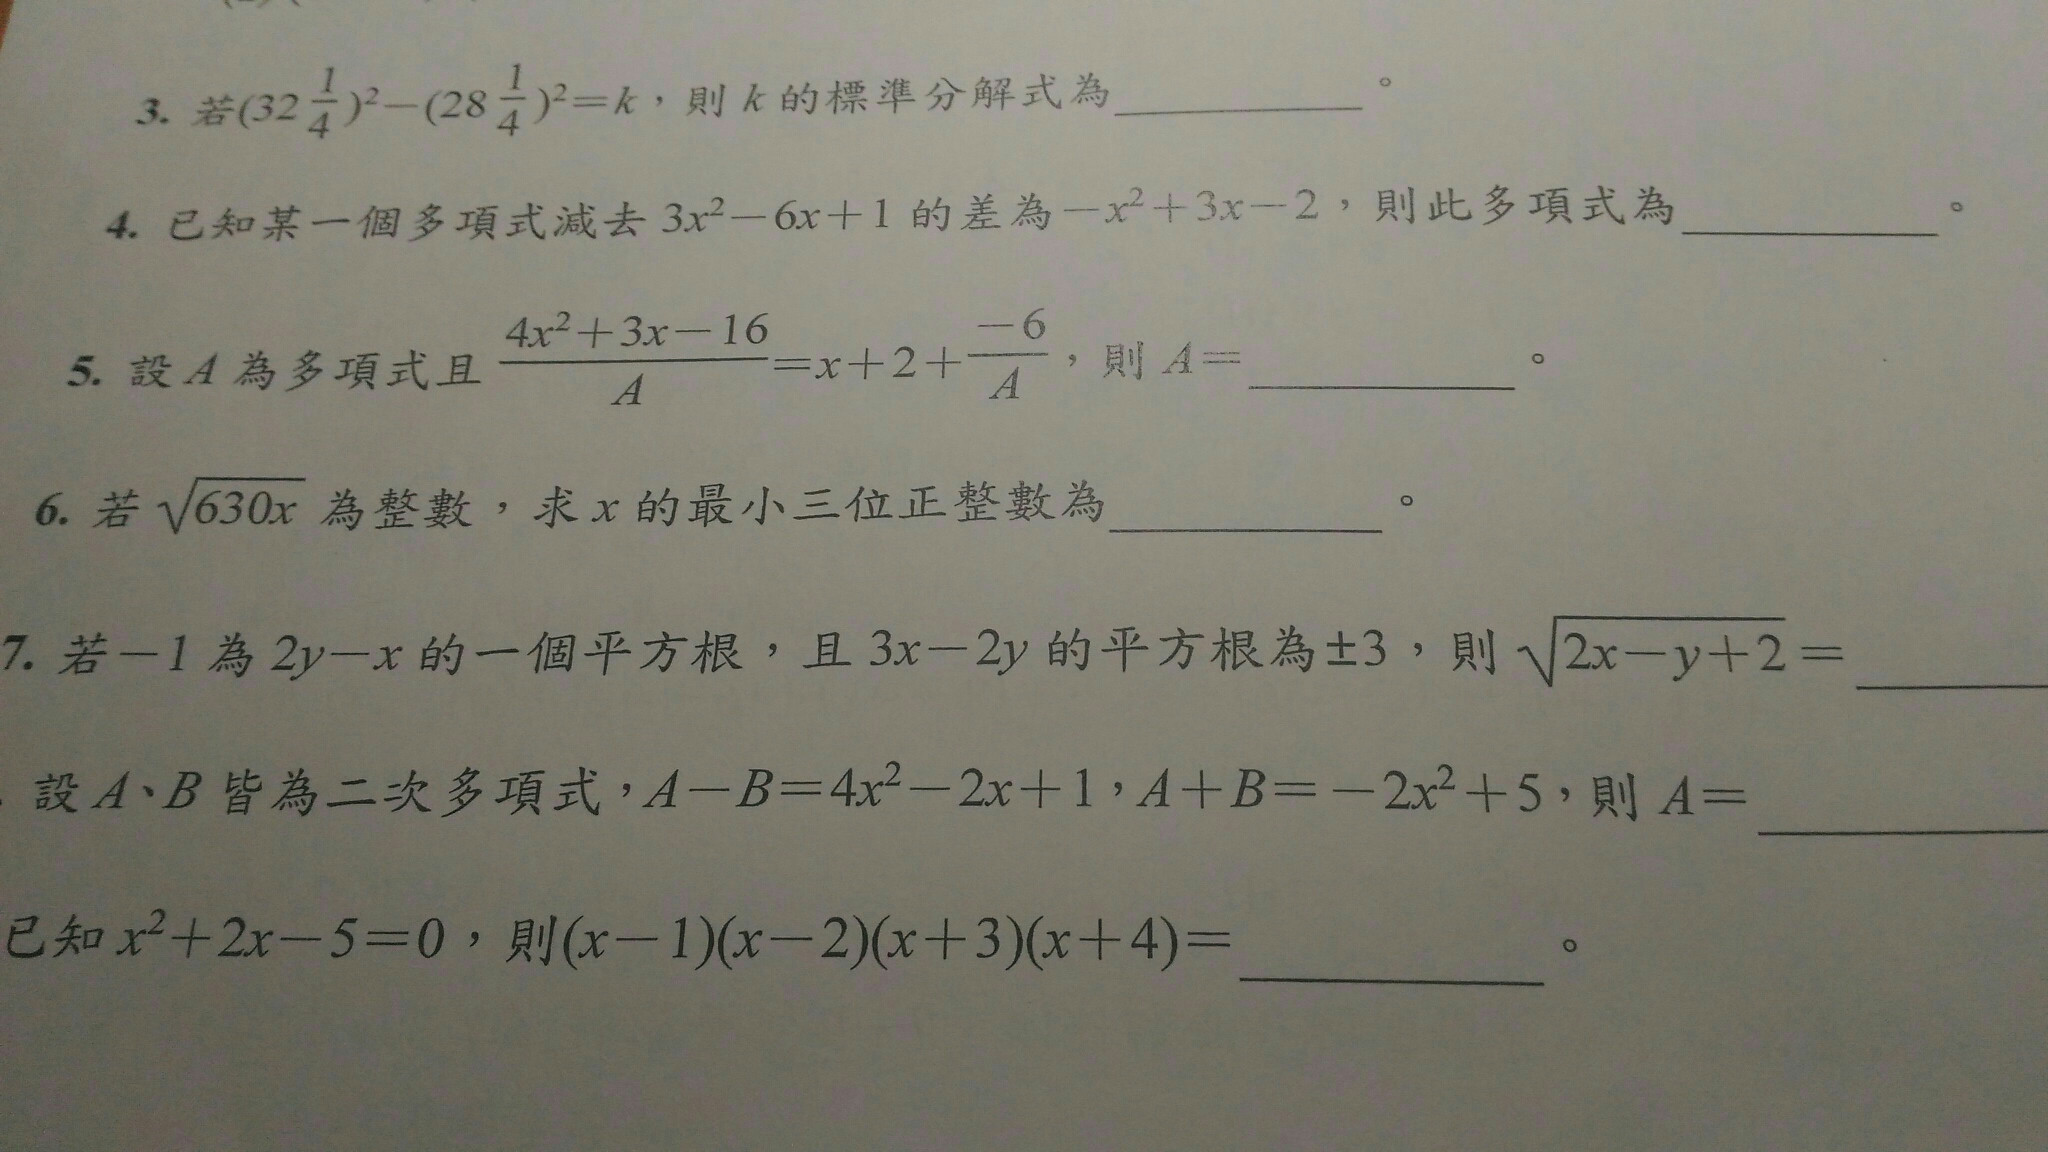 3. 若(32 1/4)²－(28 1/4)²＝k，則 k 的標準分解式為＿＿＿＿＿。
4. 已知某一個多項式減去 3x²－6x＋1 的差為－x²＋3x－2，則此多項式為＿＿＿＿＿。
5. 設 A 為多項式且 (4x²＋3x－16)/A＝x＋2＋(－6)/A，則 A＝＿＿＿＿＿。
6. 若 √(630x) 為整數，求 x 的最小三位正整數為＿＿＿＿＿。
7. 若－1 為 2y－x 的一個平方根，且 3x－2y 的平方根為±3，則 √(2x－y＋2)＝＿＿＿＿
. 設 A、B 皆為二次多項式，A－B＝4x²－2x＋1，A＋B＝－2x²＋5，則 A＝＿＿＿＿＿
已知 x²＋2x－5＝0，則(x－1)(x－2)(x＋3)(x＋4)＝＿＿＿＿＿。